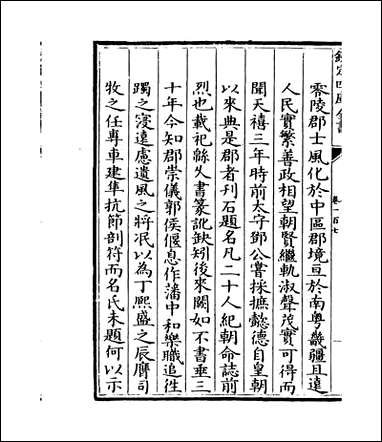 欽定四庫全書
卷一百七
零陵郡士風化於中區郡境亘於南粤畿疆且遠
人民實繁善政相望朝賢繼軌淑聲茂實可得而
聞天禧三年時前太守鄧公嘗採摭懿德自皇朝
以來典是郡者刋石題名凡二十人紀朝命誌前
烈也載祀緜久書篆訛缺矧後來闕如不書垂三
十年今知郡崇儀郭侯偃息作藩中和樂職追徃
躅之寖遠慮遺風之將泯以為丁熙盛之辰膺司
牧之任專車建隼抗節剖符而名氏未題何以示